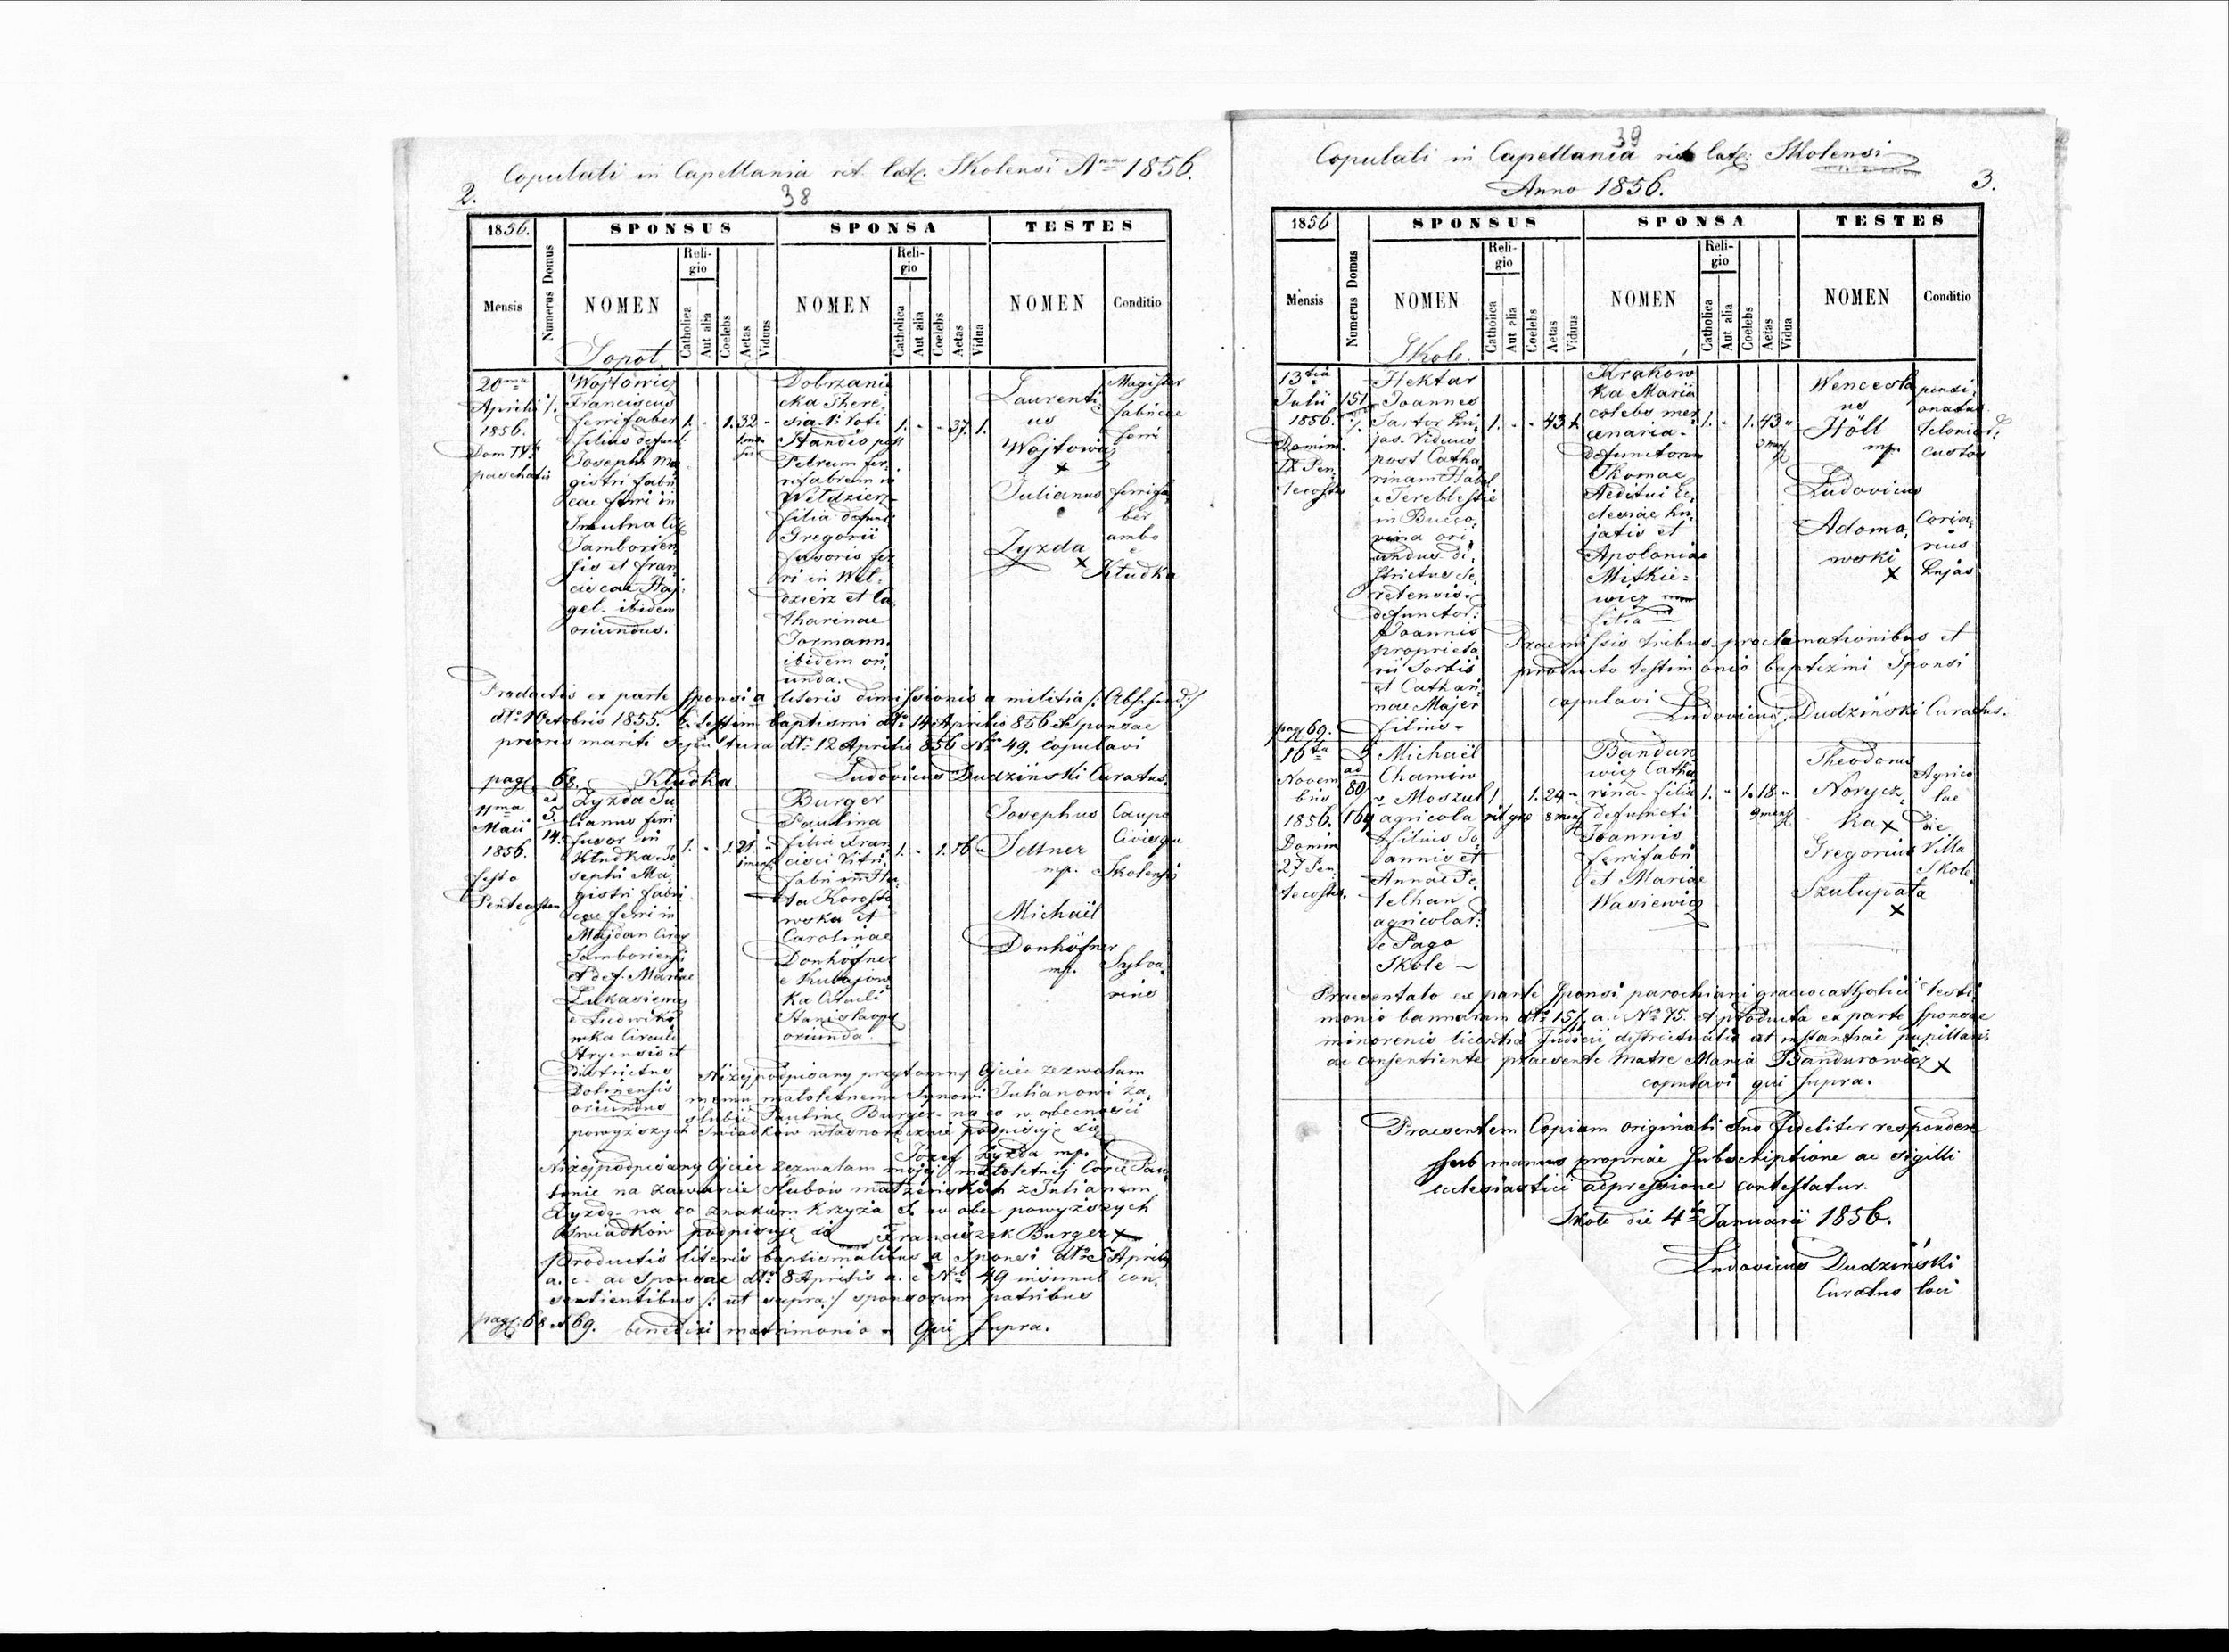 Copulati in Capellania rit. lat. Skolensi Anno 1856.
2.
38
1856.
SPONSUS
SPONSA
TESTES
Mensis
Numerus Domus
NOMEN
Religio
Catholica
Aut alia
Coelebs
Aetas
Viduus
NOMEN
Religio
Catholica
Aut alia
Coelebs
Aetas
Vidua
NOMEN
Conditio
Sopot.
20ma
Aprilis
1856.
Dom IV
paschatis
1.
Wojtowicz
Franciscus
ferrifaber
filius defunc:
Josephi Ma
gistri fabri
cae ferri in
Smulna
Samborien
sis et Fran
ciscae
gel. ibidem
oriundus.
1. - 1. 32 -
Dobrzanic
ka There
sia
post
Petrum fer
rifabrum in
Weldzierz
filia defunc:
Gregorii
fusoris fer
ri in Wel:
dzierz et Ca
tharinae
Formann.
ibidem ori
unda.
1. - - 37. 1.
Laurenti
us
Wojtowicz
x
Julianus
Zyzda
x
Magister
fabricae
ferri
ferrifa
ber
ambo
e
Kludka
Productis ex parte sponsi a literis dimissionis a militia
dto 1 Octobris 1855. b. testim baptismi dto 14 Aprilis 856 et Sponsae
prioris mariti sepultura dto 12 Aprilis 856 No 49. copulavi
Ludovicus Dudziński Curatus.
pag. 68.
Kludka.
11ma
Maii
1856.
festo
Pentecosten
ad
5.
14.
Zyzda Ju
lianus ferri
fusor in
Kludka. Jo
sephi Ma
gistri fabri
cae ferri in
Majdan Circ
Samboriensi
et def. Mariae
Lukasiewicz
e Ludwikó
wka Circuli
Stryensis et
districtus
Dolinensis
oriundus
1. - 1. 21. -
Burger
Paulina
filia Fran
cisci Vitri
fabri in Hu
ta Korosto
wska et
Carolinae
Donhöfner
e Rubajow
ka Circuli
Stanislaop
oriunda.
1. - 1. 16 -
Josephus
Feltner
mp.
Michaël
Donhöfner
mp.
Caupo
Civisque
Skolensis
Sylva
rius
Niżej podpisany przytomny Ojciec zezwalam
memu małoletnemu Synowi Julianowi Za
ślubić Paulinę Burger - na co w obecności
powyższych Świadków własnoręcznie podpisuję się
Józef Zyzda mp.
Niżej podpisany Ojciec zezwalam mojej małoletnej Córce Pau
linie na zawarcie ślubów małżeńskich z Julianem
Zyzdą - na co znakiem krzyża S. w obec powyższych
Świadków podpisuję się Franciszek Burger x
Productis literis baptismalibus a Sponsi dto 5 Aprilis
a. c. ac Sponsae dto 8 Aprilis a. c No 49 insimul con
sentientibus /: ut supra :/ sponsorum patribus
pag: 68 et 69. benedixi matrimonio - Qui supra.
39
Copulati in Capellania rit lat: Skolensi
Anno 1856.
3.
1856
SPONSUS
SPONSA
TESTES
Mensis
Numerus Domus
NOMEN
Religio
Catholica
Aut alia
Coelebs
Aetas
Viduus
NOMEN
Religio
Catholica
Aut alia
Coelebs
Aetas
Vidua
NOMEN
Conditio
Skole.
13tia
Julii
1856.
Domini.
IX Pen
tecostes
151
Hektar
Joannes
Sartor hu
jas. Viduus
post Catha
rinam Habel
e Tereblestie
in Bucco
vina ori
undus di
strictus Se
retensis.
defunctor:
Joannis
proprieta
rii Sortis
et Cathari
nae Majer
filius -
1. - - 43 1.
Kraków
ka Maria
coelebs mer
cenaria -
defunctorum
Thomae
Aeditui Ec
clesiae hu
jatis et
Apoloniae
Mitkie=
wicz
filia
1. - 1. 43 -
Wencesla
us
Höll
mp.
Ludovicus
Adamo
wski
x
pensi
onatus
telonior:
custos
Coria
rius
hujas
Praemissis tribus proclamationibus et
producto testimonio baptizmi Sponsi
copulavi
Ludovicus Dudziński Curatus.
pag 69.
16ta
Novem
bris
1856.
Domin
27 Pen
tecostes.
ad
80
169
Michaël
Chamów
v. Moszul
agricola
filius Jo
annis et
Annae Pe
telhan
agricolar:
e Pago
Skole -
1 1. 24 -
rit grc 8 mens
Bandur
wicz Catha
rina - filia
defuncti
Joannis
ferrifabri
et Mariae
Wasiewicz
1. - 1. 18 -
9 mens
Theodorus
Norycz
ka x
Gregorius
Szulupata
x
Agrico
lae
Villa
Skole
Praesentato ex parte Sponsi parochiani graecocatholici testi
monio bannorum dto 15/11 a. c No 75. et producta ex parte sponsae
minorenis licentia Judicii districtualis at instantiae pupillaris
ac consentiente praesente matre Maria Bandurowicz x
copulavi qui supra.
Praesentem Copiam originali suo fideliter respondere
sub manus propriae subscriptione ac sigilli
ecclesiastici adpressione contestatur.
Skole die 4ta Januarii 1856.
Ludovicus Dudziński
Curatus loci